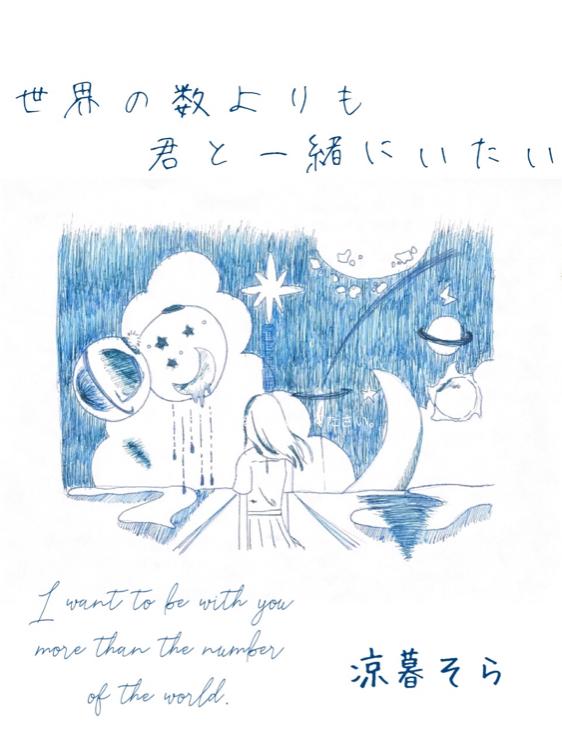 世界の数よりも
君と一緒にいたい
I want to be with you
more than the number
of the world.
凉暮そら